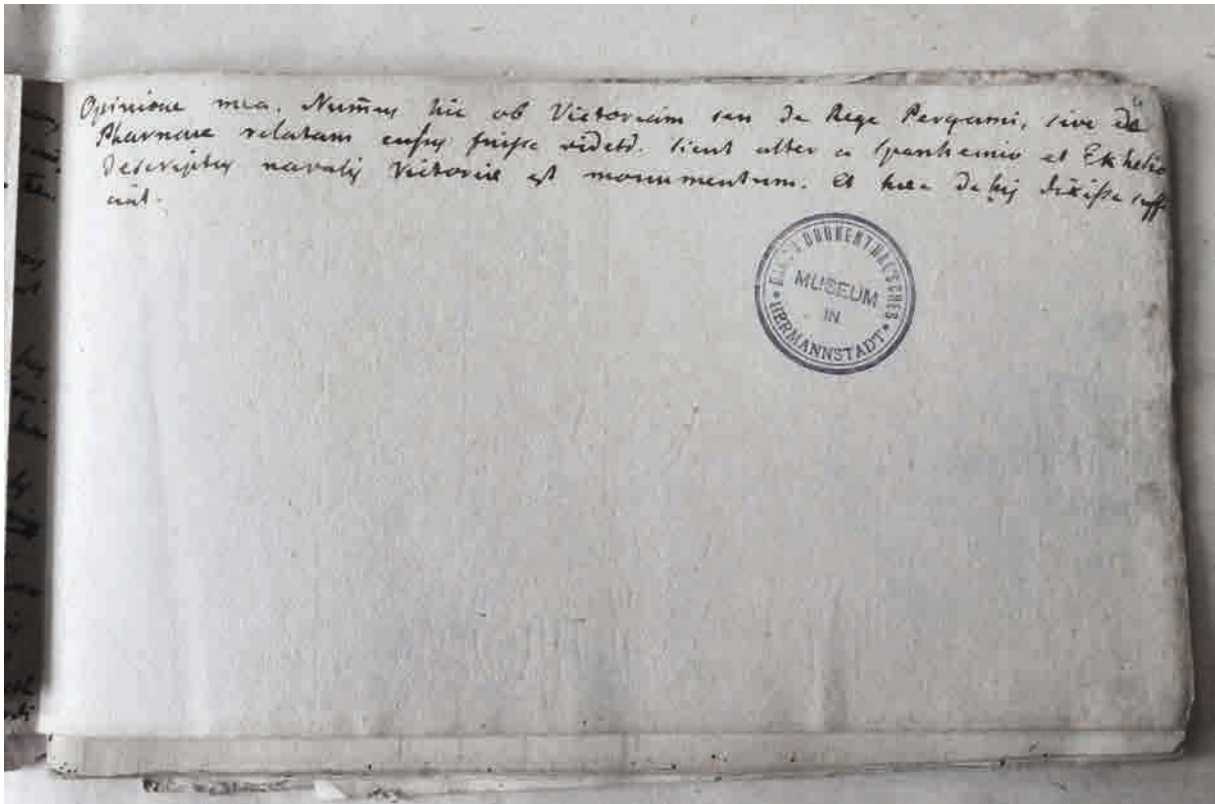 Opinione mea. Num̃us hic ob Victoriam seu de Rege Pergami, sive de
Pharnace relatam cusus fuisse videtr. sicut alter a Spanhemio et Ekhelio
descriptus navalis Victoriæ est monumentum. et hæc de his dixisse suffi
cint.
BARON BRUKENTHAL'SCHES
MUSEUM
IN
HERMANNSTADT